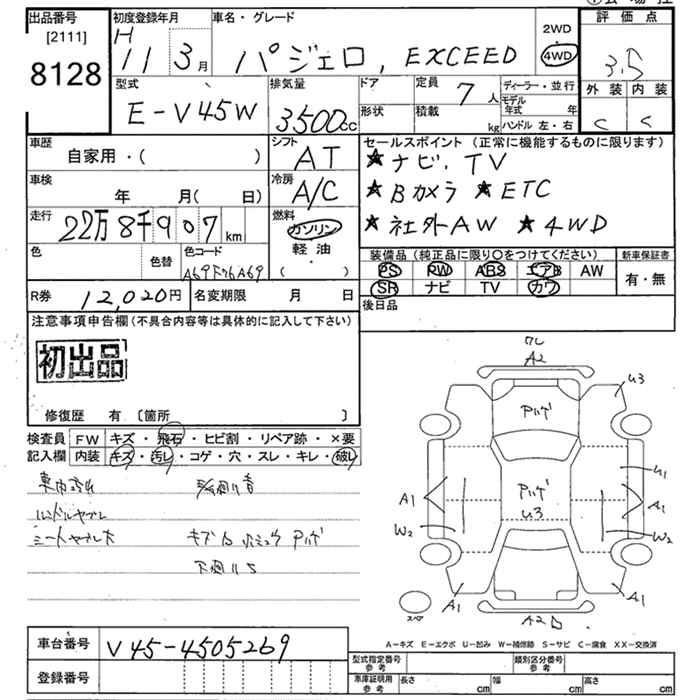 出品番号 初度登録年月 車名・グレード 評価点
[2111] H 2WD
8128 11 3月 パジェロ, EXCEED 4WD 3.5
型式 排気量 ドア 定員 7人 ディーラー・並行 外装 内装
E-V45W 3500cc 形状 積載 kg モデル年式 年 C C
ハンドル 左・右
車歴 シフト セールスポイント (正常に機能するものに限ります)
自家用・( ) AT ★ナビ、TV
車検 冷房 ★Bカメラ ★ETC
年 月( 日) A/C ★社外AW ★4WD
走行 22万8千907km 燃料 ガソリン
軽油
( )
色 色替 色コード 装備品 (純正品に限り○をつけてください) 新車保証書
PS PW ABS エアB AW 有・無
SR ナビ TV カワ
R券 12,020円 名変期限 月 日 後日品
注意事項申告欄 (不具合内容等は具体的に記入して下さい)
初出品
修復歴 有 〔箇所 〕
検査員 FW キズ・飛石・ヒビ割・リペア跡・×要
記入欄 内装 キズ・汚レ・コゲ・穴・スレ・キレ・破レ
ハンドルヤブレ
シートヤブレ大
下廻りS
ワレ
A2
U3
Pハゲ
Pハゲ
U3
U1
A1 A1
W2 W2
A1 A1
スペア
A2
A-キズ E-エクボ U-凹み W-補修跡 S-サビ C-腐食 XX-交換済
車台番号 V45-4505269
登録番号
型式指定番号 参考 類別区分番号 参考
車庫証明用 参考 長さ cm 幅 cm 高さ cm